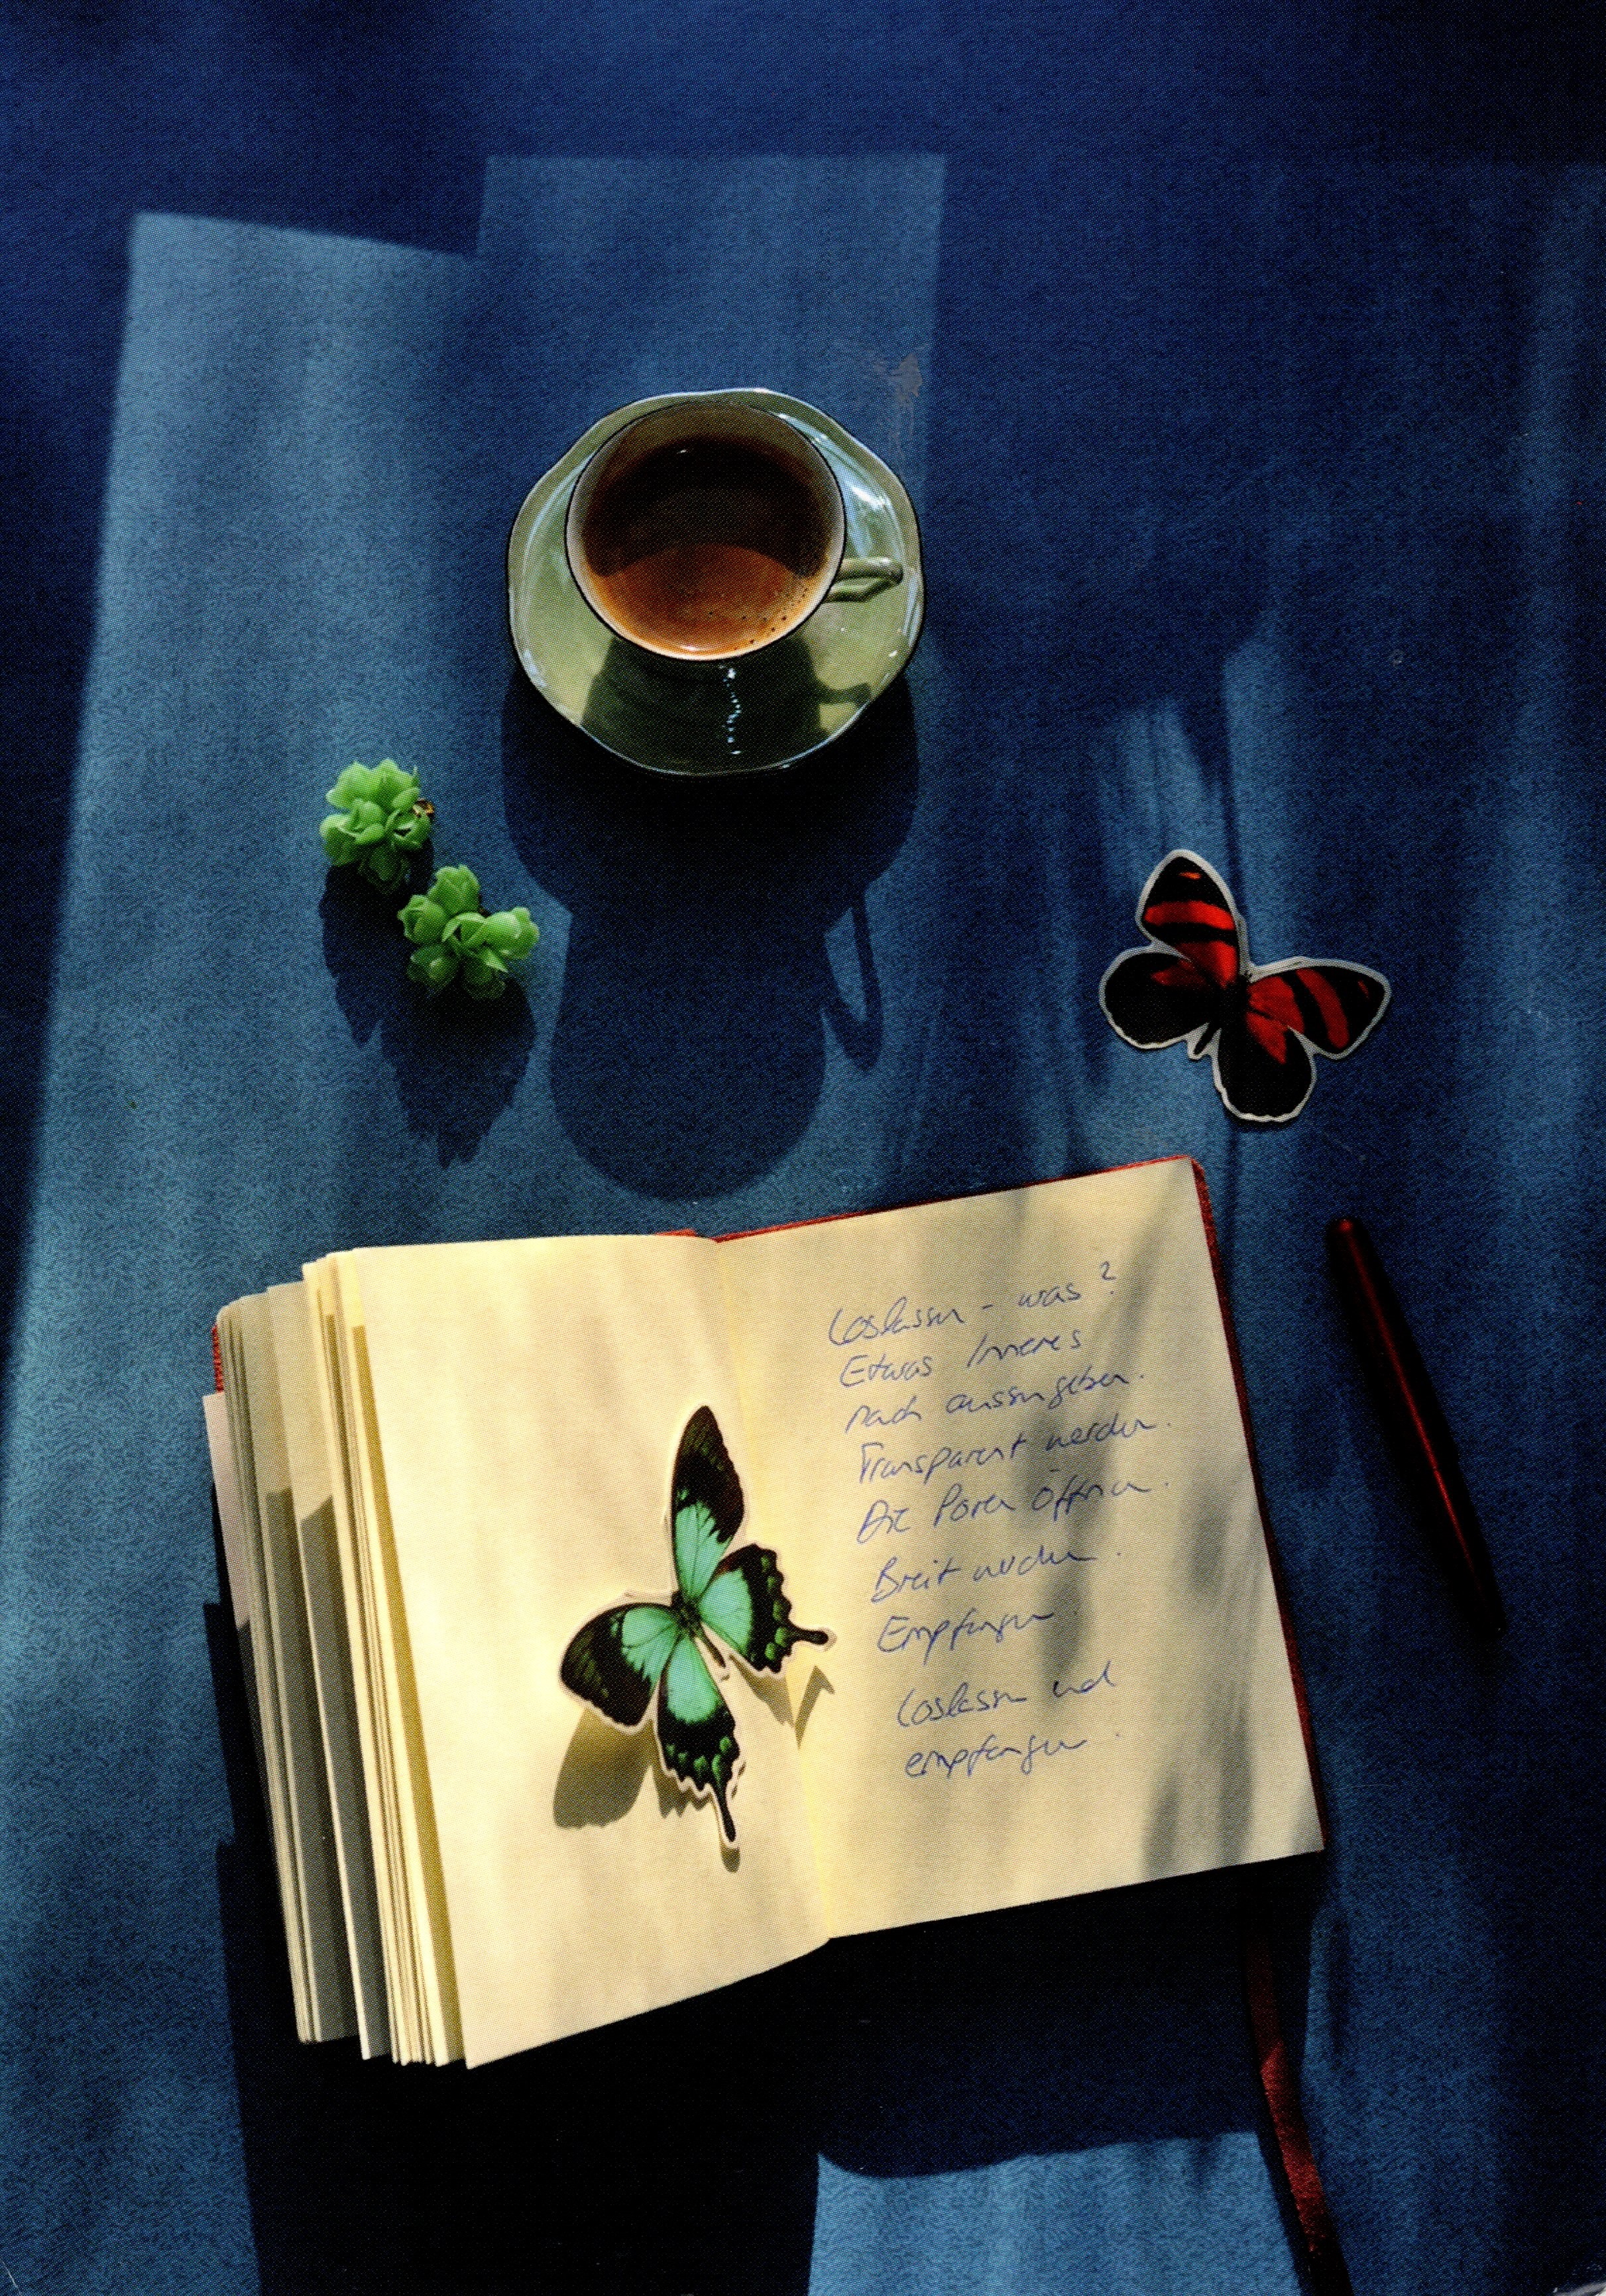 Loslassen - was?
Etwas Inneres
nach aussen geben.
Transparent werden.
Die Poren öffnen.
Breit werden.
Empfangen.
Loslassen und
empfangen.